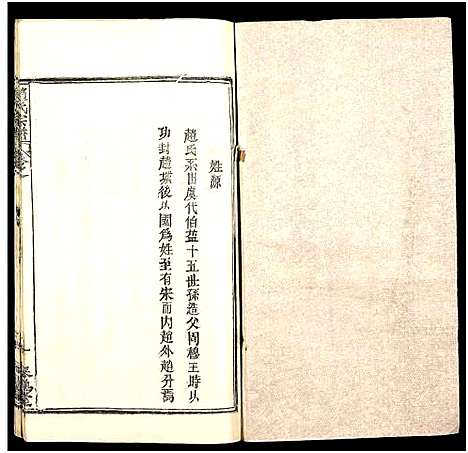 姓源
趙氏系出虞代伯益十五世孫造父周穆王時以
功封趙城後以國為姓至有宋而內趙外趙分焉